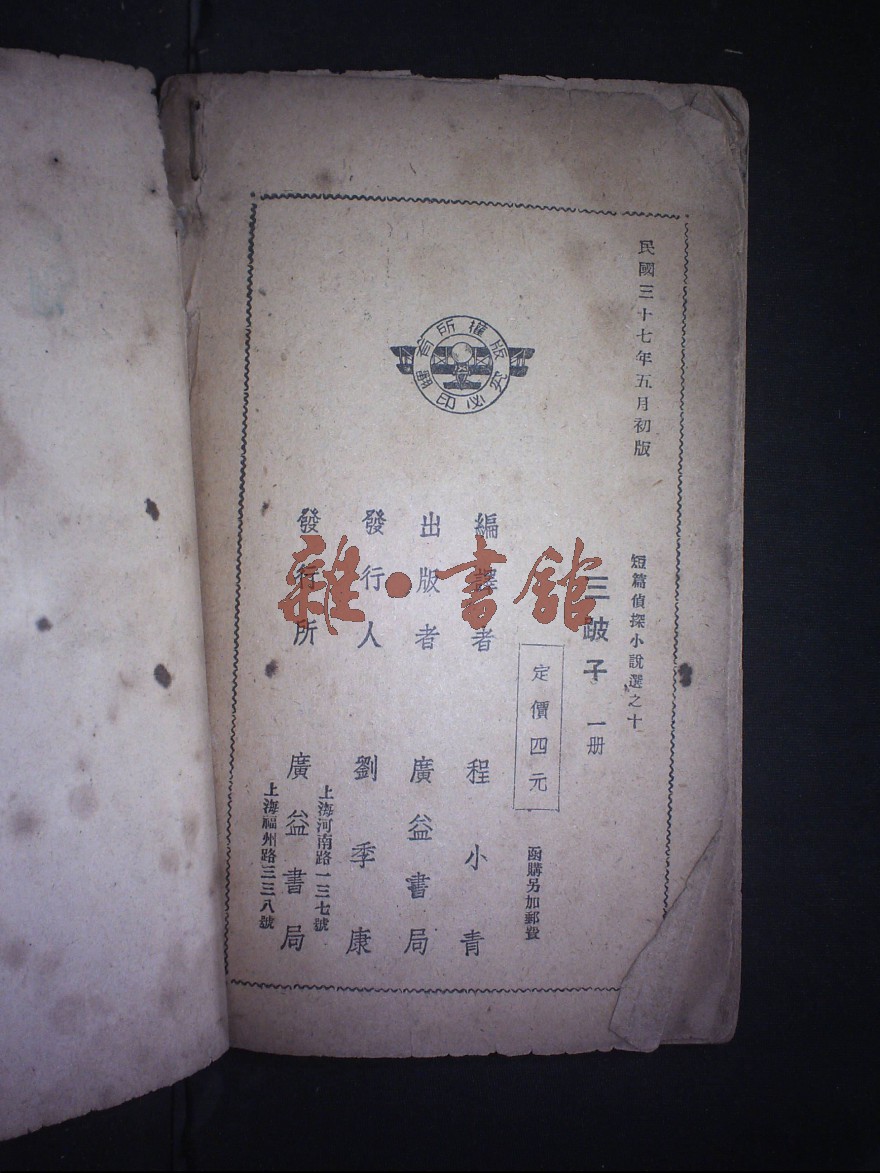 民國三十七年五月初版
版權所有
翻印必究
短篇偵探小說選之十
三跛子 一册
定價四元
函購另加郵費
編譯者 程小青
出版者 廣益書局
發行人 劉季康
上海河南路一三七號
發行所 廣益書局
上海福州路三三八號
雜·書館